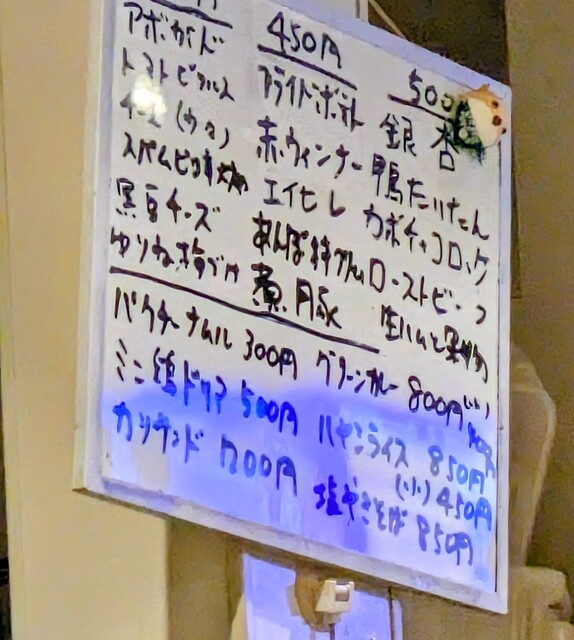 アボカド
トマトピクルス
黒豆チーズ
ゆりね塩づけ
450円
フライドポテト
赤ウィンナー
エイヒレ
あんぽ柿
煮豚
500
銀杏
鴨だいたん
カボチャコロッケ
ローストビーフ
生ハムと果物
パクチーナムル 300円
ミニ鶏ドリア 500円
カツサンド 700円
グリーンカレー 800円
ハヤシライス 850円
(小) 450円
塩やきそば 850円